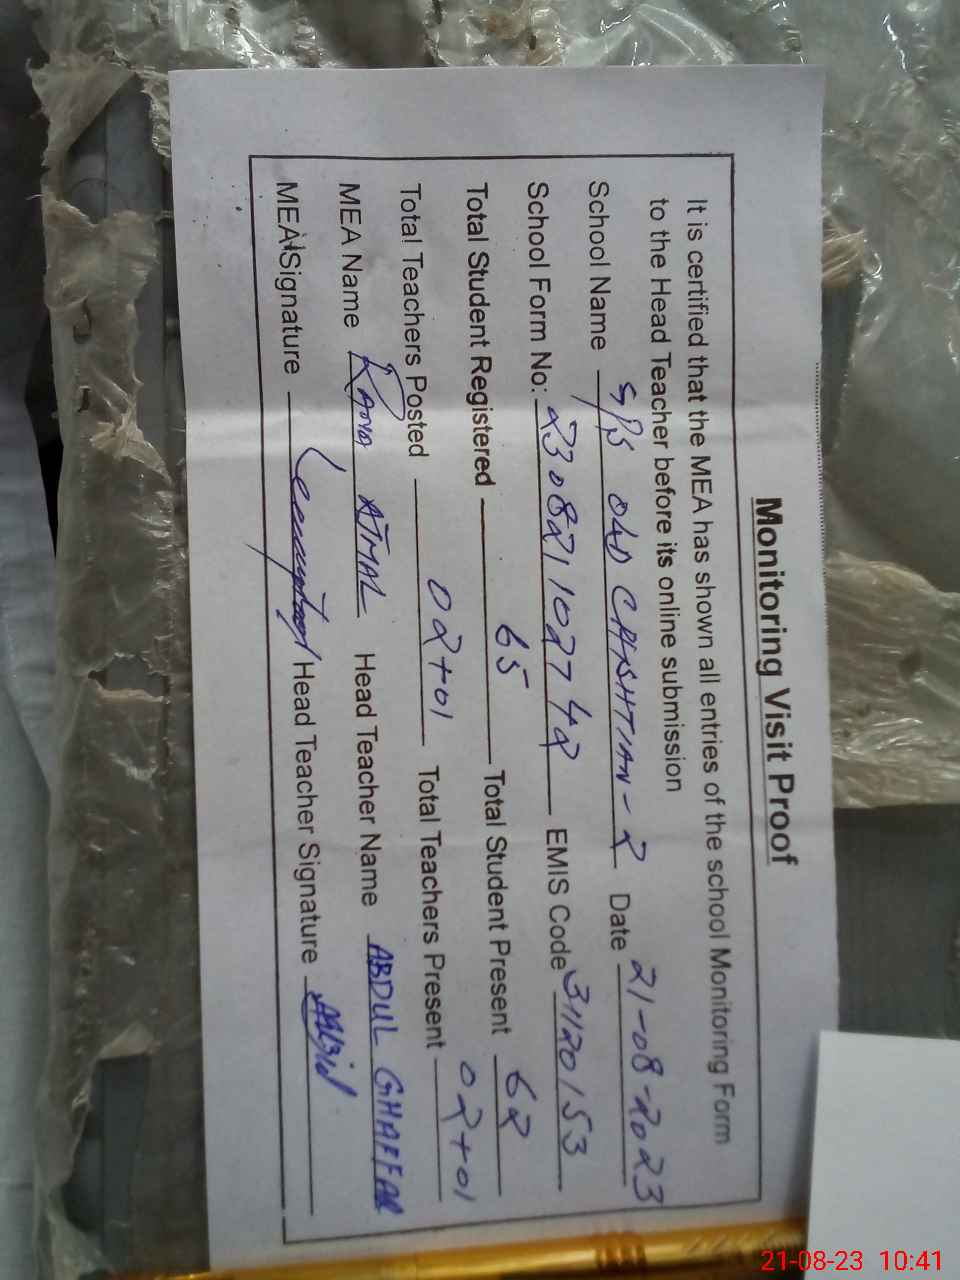 Monitoring Visit Proof
It is certified that the MEA has shown all entries of the school Monitoring Form
to the Head Teacher before its online submission
School Name GPS OLD CHISHTIAN-2 Date 21-08-2023
School Form No: 2308211027 42 EMIS Code 31120153
Total Student Registered 65 Total Student Present 62
Total Teachers Posted 02+01 Total Teachers Present 02+01
MEA Name RANA AJMAL Head Teacher Name ABDUL GHAFFAR
MEA Signature Head Teacher Signature
21-08-23 10:41